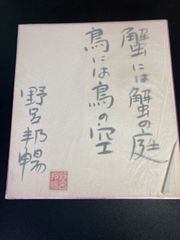 蟹には蟹の庭
鳥には鳥の空
野呂邦暢